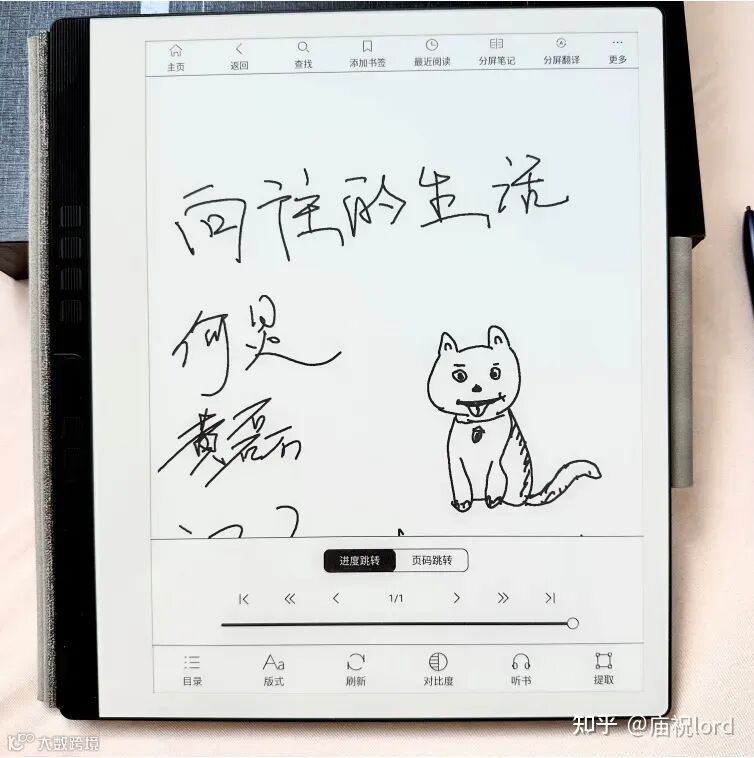 主页 返回 查找 添加书签 最近阅读 分屏笔记 分屏翻译 更多
向往的生活
何炅
黄磊
进度跳转 页码跳转
1/1
目录 版式 刷新 对比度 听书 提取
知乎 @庙祝lord
大数跨境